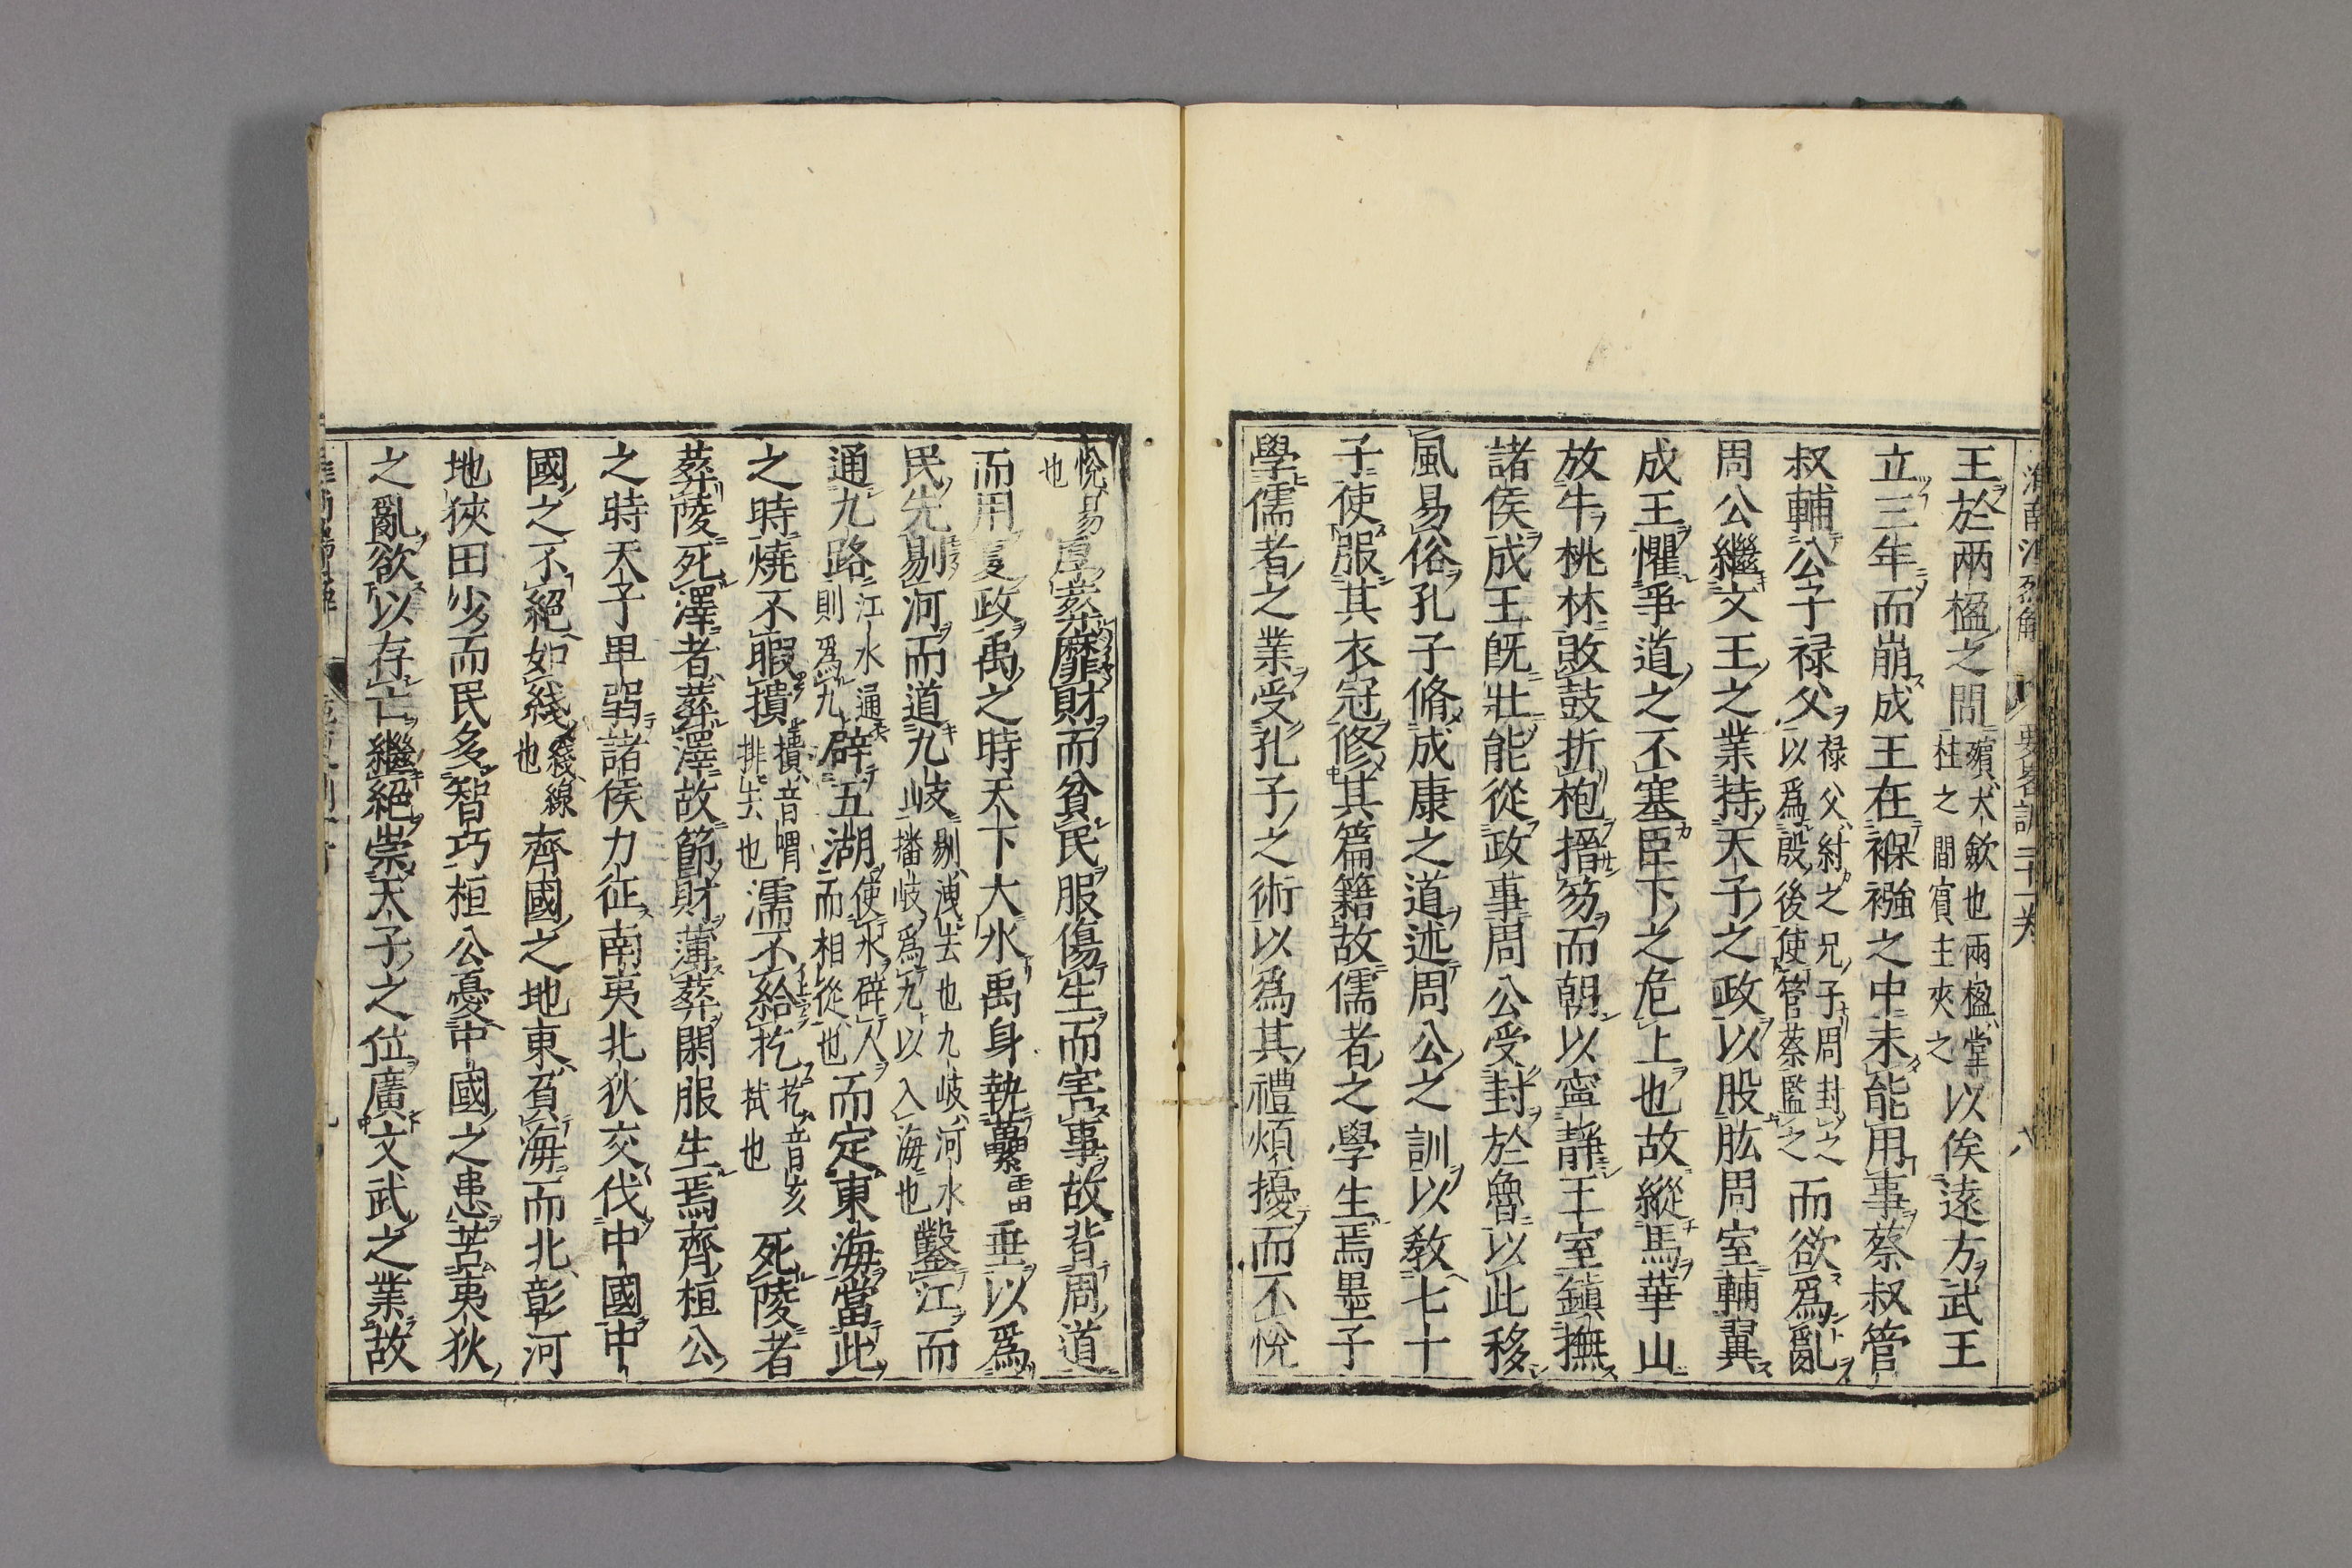 淮南鴻烈解 要畧訓二十一卷 八
王於兩楹之間殯大歛也兩楹堂柱之間賓主夾之以俟遠方武王
立三年而崩成王在褓襁之中未能用事蔡叔管
叔輔公子禄父禄父紂之兄子周封之以爲殷後使管蔡監之而欲爲亂
周公繼文王之業持天子之政以股肱周室輔翼
成王懼爭道之不塞臣下之危上也故縱馬華山
放牛桃林敗鼓折枹搢笏而朝以寧靜王室鎮撫
諸侯成王既壯能從政事周公受封於魯以此移
風易俗孔子脩成康之道述周公之訓以教七十
子使服其衣冠修其篇籍故儒者之學生焉墨子
學儒者之業受孔子之術以爲其禮煩擾而不悅
悅易也厚葬靡財而貧民服傷生而害事故背周道
而用夏政禹之時天下大水禹身執虆垂以爲
民先剔河而道九岐剔洩去也九岐河水播岐爲九以入海也鑿江而
通九路江水通則爲九辟五湖使水辟人而相從也而定東海當此
之時燒不暇撌撌音喟排去也濡不給扢扢音亥拭也死陵者
葬陵死澤者葬澤故節財薄葬閑服生焉齊桓公
之時天子卑弱諸侯力征南夷北狄交伐中國中
國之不絕如綫綫線也齊國之地東負海而北彰河
地狹田少而民多智巧桓公憂中國之患苦夷狄
之亂欲以存亡繼絕崇天子之位廣文武之業故